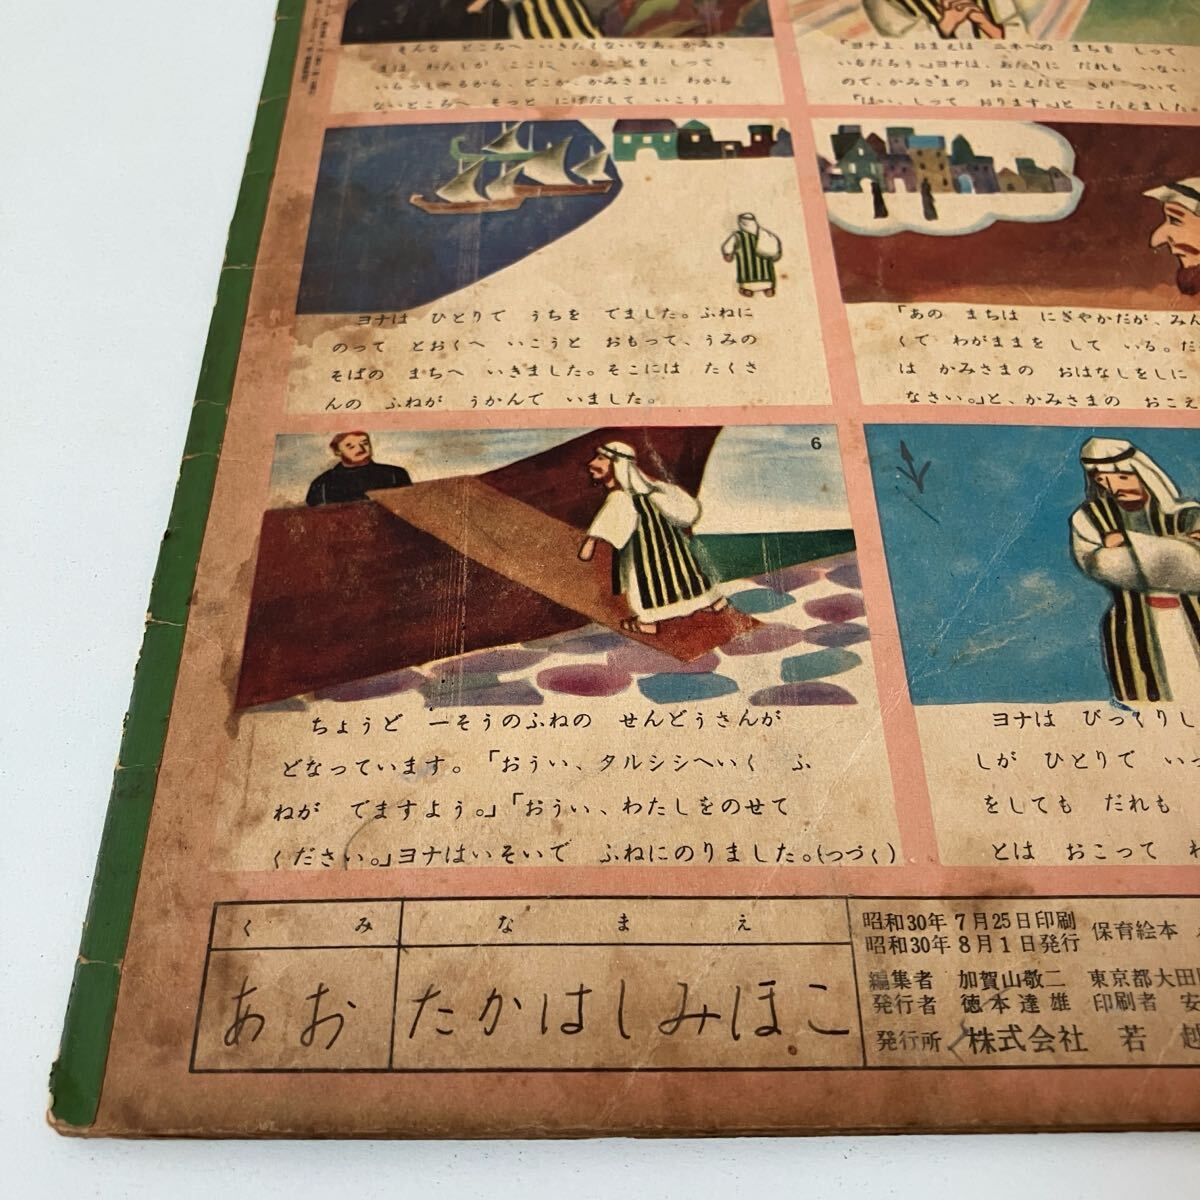 「ヨナよ、おまえは ニネベの まちを しって
いるだろう。」ヨナは、あたりに だれも いない
ので、かみさまの おこえだと きが ついて
「はい、しって おります。」と こたえました。
そんな ところへ いきたくないなあ。かみさ
まは わたしが ここに いることを しって
いらっしゃるから どこか かみさまに わから
ないところへ そっと にげだして いこう。
「あの まちは にぎやかだが、みん
くて わがままを して いる。だ
は かみさまの おはなしをしに
なさい。」と、かみさまの おこえ
ヨナは ひとりで うちを でました。ふねに
のって とおくへ いこうと おもって、うみの
そばの まちへ いきました。そこには たくさ
んの ふねが うかんで いました。
ヨナは びっくりし
しが ひとりで いっ
をしても だれも
とは おこって わ
6
ちょうど 一そうのふねの せんどうさんが
どなっています。「おうい、タルシシへいく ふ
ねが でますよう。」「おうい、わたしをのせて
ください。」ヨナはいそいで ふねにのりました。(つづく)
くみ なまえ
あお たかはしみほこ
昭和30年7月25日印刷
昭和30年8月1日発行
保育絵本
編集者 加賀山敬二 東京都大田
発行者 徳本達雄 印刷者 安
発行所 株式会社 若越